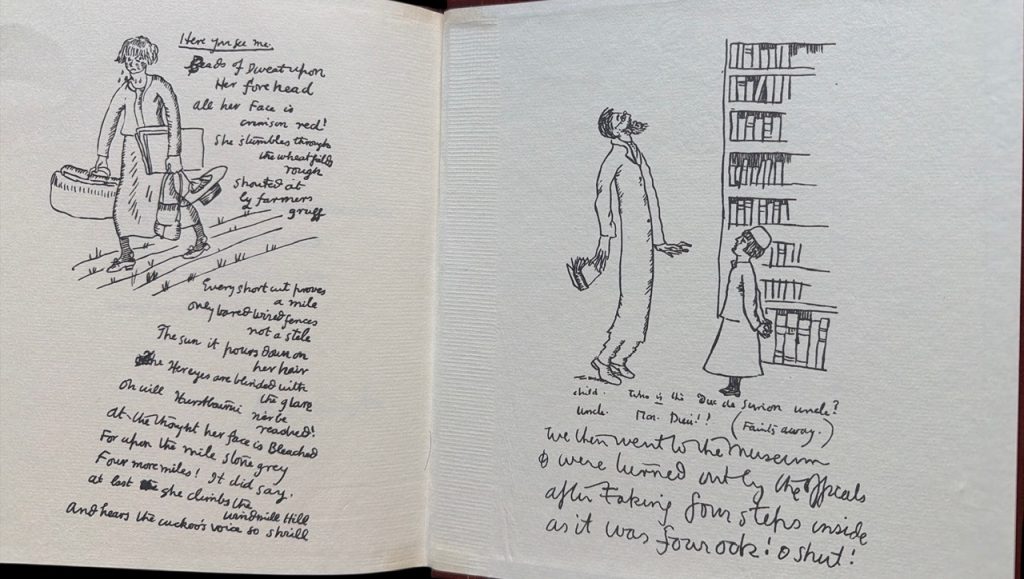 Here you see me.
Beads of sweat upon
Her forehead
all her Face is
crimson red!
She stumbles through
the wheatfields
rough
shouted at
by farmers
gruff
Every short cut proves
a mile
only bared wired fences
not a stile
The sun it pours down on
her hair
the Her eyes are blinded with
the glare
oh will Hurstbourne ne'er be
reached!
at the thought her face is Bleached
For upon the mile stone grey
Four more miles! It did say.
at last she climbs the
windmill Hill
And hears the cuckoo's voice so shrill
child. Who is this Duc de Surion uncle?
uncle. Mon Dieu!! (Faints away.)
We then went to the Museum
& were turned out by the Officals
after taking four steps inside
as it was four ock! & shut!